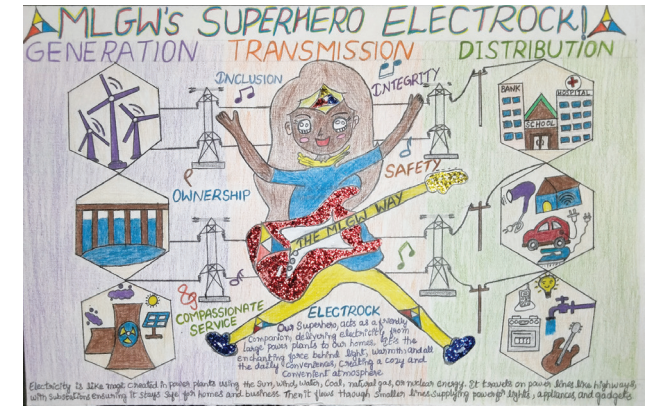 MLGW'S SUPERHERO ELECTROCK!
GENERATION TRANSMISSION DISTRIBUTION
INCLUSION
INTEGRITY
BANK
HOSPITAL
SCHOOL
SAFETY
OWNERSHIP
THE MLGW WAY
COMPASSIONATE
SERVICE
ELECTROCK
Our Superhero, acts as a friendly
companion, delivering electricity from
large power plants to our homes. It's the
enchanting force behind light, warmth and all
the daily conveniences, creating a cozy and
convenient atmosphere
Electricity is like magic created in power plants using the Sun, wind, water, Coal, natural gas, or nuclear energy. It travels on power lines like highways,
with substations ensuring it stays safe for homes and business Then it flows through smaller lines supplying power for lights, appliances, and gadgets